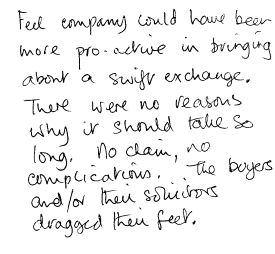 Feel company could have been
more pro-active in bringing
about a swift exchange.
There were no reasons
why it should take so
long. No chain, no
complications. The buyers
and/or their solicitors
dragged their feet.